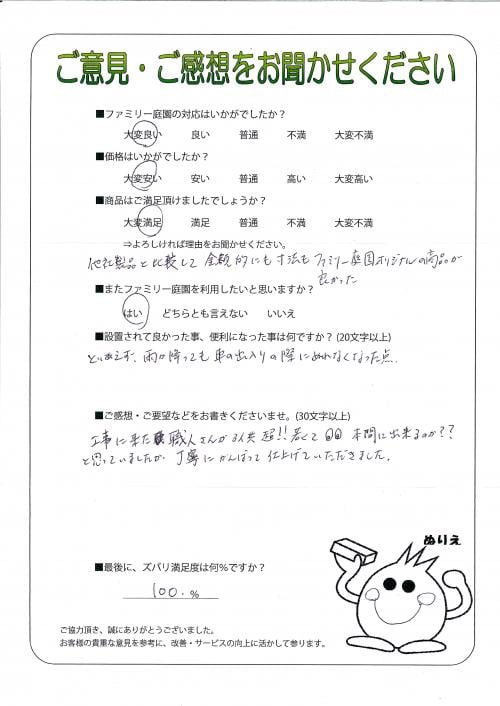 ご意見・ご感想をお聞かせください
■ファミリー庭園の対応はいかがでしたか？
大変良い 良い 普通 不満 大変不満
■価格はいかがでしたか？
大変安い 安い 普通 高い 大変高い
■商品はご満足頂けましたでしょうか？
大変満足 満足 普通 不満 大変不満
⇒よろしければ理由をお聞かせください。
他社製品と比較して金額的にも寸法もファミリー庭園オリジナルの商品が
良かった
■またファミリー庭園を利用したいと思いますか？
はい どちらとも言えない いいえ
■設置されて良かった事、便利になった事は何ですか？(20文字以上)
とりあえず、雨が降っても車の出入りの際にぬれなくなった点.
■ご感想・ご要望などをお書きくださいませ。(30文字以上)
工事に来た職人さんが3人共超!!若くて 本間に出来るのか??
と思っていましたが、丁寧にがんばって仕上げていただきました.
ぬりえ
■最後に、ズバリ満足度は何％ですか？
100. %
ご協力頂き、誠にありがとうございました。
お客様の貴重な意見を参考に、改善・サービスの向上に活かして参ります。